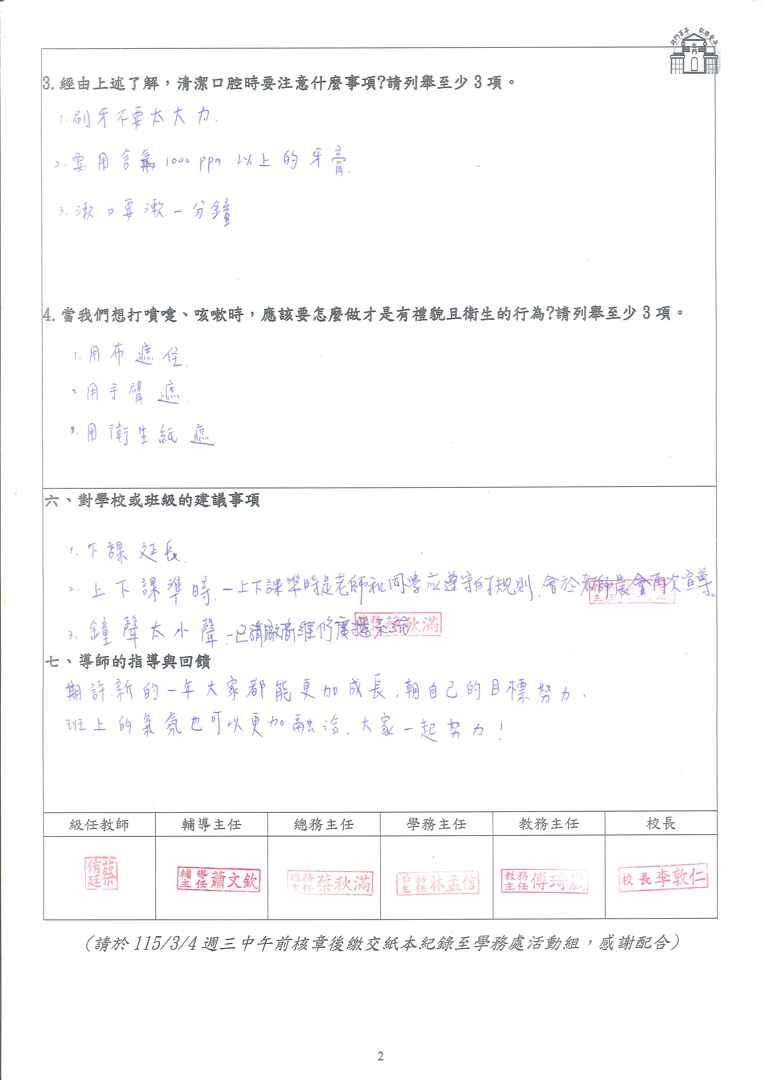 3. 經由上述了解，清潔口腔時要注意什麼事項?請列舉至少 3 項。
1. 刷牙不要太大力.
2. 要用含氟1000 ppm 以上的牙膏.
3. 漱口要漱一分鐘
4. 當我們想打噴嚏、咳嗽時，應該要怎麼做才是有禮貌且衛生的行為?請列舉至少 3 項。
1. 用布遮住.
2. 用手臂遮.
3. 用衛生紙遮
六、對學校或班級的建議事項
1. 下課延長.
2. 上下課準時.－上下課準時是老師和同學應遵守的規則,會於教師晨會再次宣導。
3. 鐘聲太小聲－已請廠商維修廣播系統
七、導師的指導與回饋
期許新的一年大家都能更加成長,朝自己的目標努力.
班上的氣氛也可以更加融洽.大家一起努力!
級任教師 輔導主任 總務主任 學務主任 教務主任 校長
輔導主任 蕭文欽 總務主任 蔡秋滿 林孟信 教務主任 傅琦 校長 李敦仁
（請於 115/3/4 週三中午前核章後繳交紙本紀錄至學務處活動組，感謝配合）
2